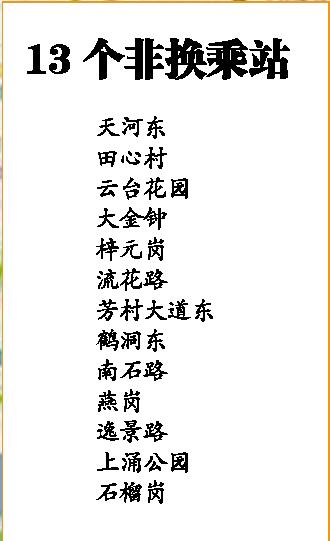 13 个非换乘站
天河东
田心村
云台花园
大金钟
梓元岗
流花路
芳村大道东
鹤洞东
南石路
燕岗
逸景路
上涌公园
石榴岗